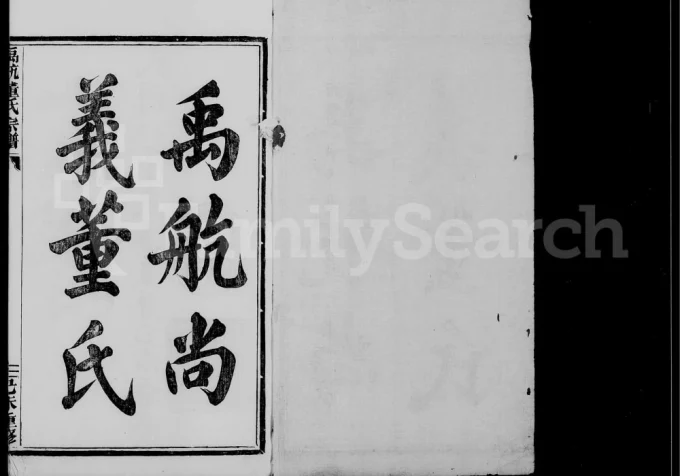 禹航尚
義董氏
禹航董氏宗譜
重修
FamilySearch